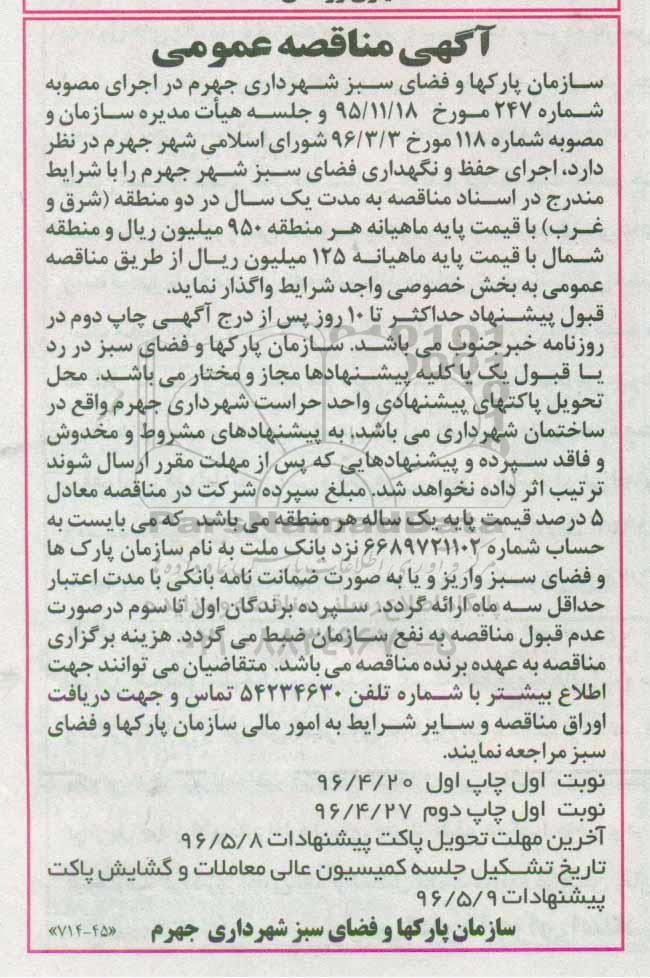 آگهی مناقصه عمومی
سازمان پارکها و فضای سبز شهرداری جهرم در اجرای مصوبه
شماره ۲۴۷ مورخ ۹۵/۱۱/۱۸ و جلسه هیأت مدیره سازمان و
مصوبه شماره ۱۱۸ مورخ ۹۶/۳/۳ شورای اسلامی شهر جهرم در نظر
دارد، اجرای حفظ و نگهداری فضای سبز شهر جهرم را با شرایط
مندرج در اسناد مناقصه به مدت یک سال در دو منطقه (شرق و
غرب) با قیمت پایه ماهیانه هر منطقه ۹۵۰ میلیون ریال و منطقه
شمال با قیمت پایه ماهیانه ۱۲۵ میلیون ریال از طریق مناقصه
عمومی به بخش خصوصی واجد شرایط واگذار نماید.
قبول پیشنهاد حداکثر تا ۱۰ روز پس از درج آگهی چاپ دوم در
روزنامه خبرجنوب می باشد. سازمان پارکها و فضای سبز در رد
یا قبول یک یا کلیه پیشنهادها مجاز و مختار می باشد. محل
تحویل پاکتهای پیشنهادی واحد حراست شهرداری جهرم واقع در
ساختمان شهرداری می باشد. به پیشنهادهای مشروط و مخدوش
و فاقد سپرده و پیشنهادهایی که پس از مهلت مقرر ارسال شوند
ترتیب اثر داده نخواهد شد. مبلغ سپرده شرکت در مناقصه معادل
۵ درصد قیمت پایه یک ساله هر منطقه می باشد. که می بایست به
حساب شماره ۶۶۸۹۷۲۱۱۰۲ نزد بانک ملت به نام سازمان پارک ها
و فضای سبز واریز و یا به صورت ضمانت نامه بانکی با مدت اعتبار
حداقل سه ماه ارائه گردد. سپرده برندگان اول تا سوم درصورت
عدم قبول مناقصه به نفع سازمان ضبط می گردد. هزینه برگزاری
مناقصه به عهده برنده مناقصه می باشد. متقاضیان می توانند جهت
اطلاع بیشتر با شماره تلفن ۵۴۲۳۴۶۳۰ تماس و جهت دریافت
اوراق مناقصه و سایر شرایط به امور مالی سازمان پارکها و فضای
سبز مراجعه نمایند.
نوبت اول چاپ اول ۹۶/۴/۲۰
نوبت اول چاپ دوم ۹۶/۴/۲۷
آخرین مهلت تحویل پاکت پیشنهادات ۹۶/۵/۸
تاریخ تشکیل جلسه کمیسیون عالی معاملات و گشایش پاکت
پیشنهادات ۹۶/۵/۹
سازمان پارکها و فضای سبز شهرداری جهرم «۷۱۴-۴۵»